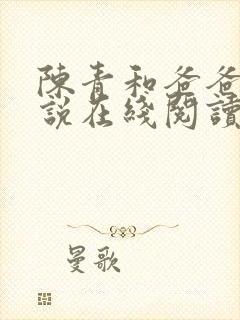 陳青和爸爸
說在綫閱讀
曼歌